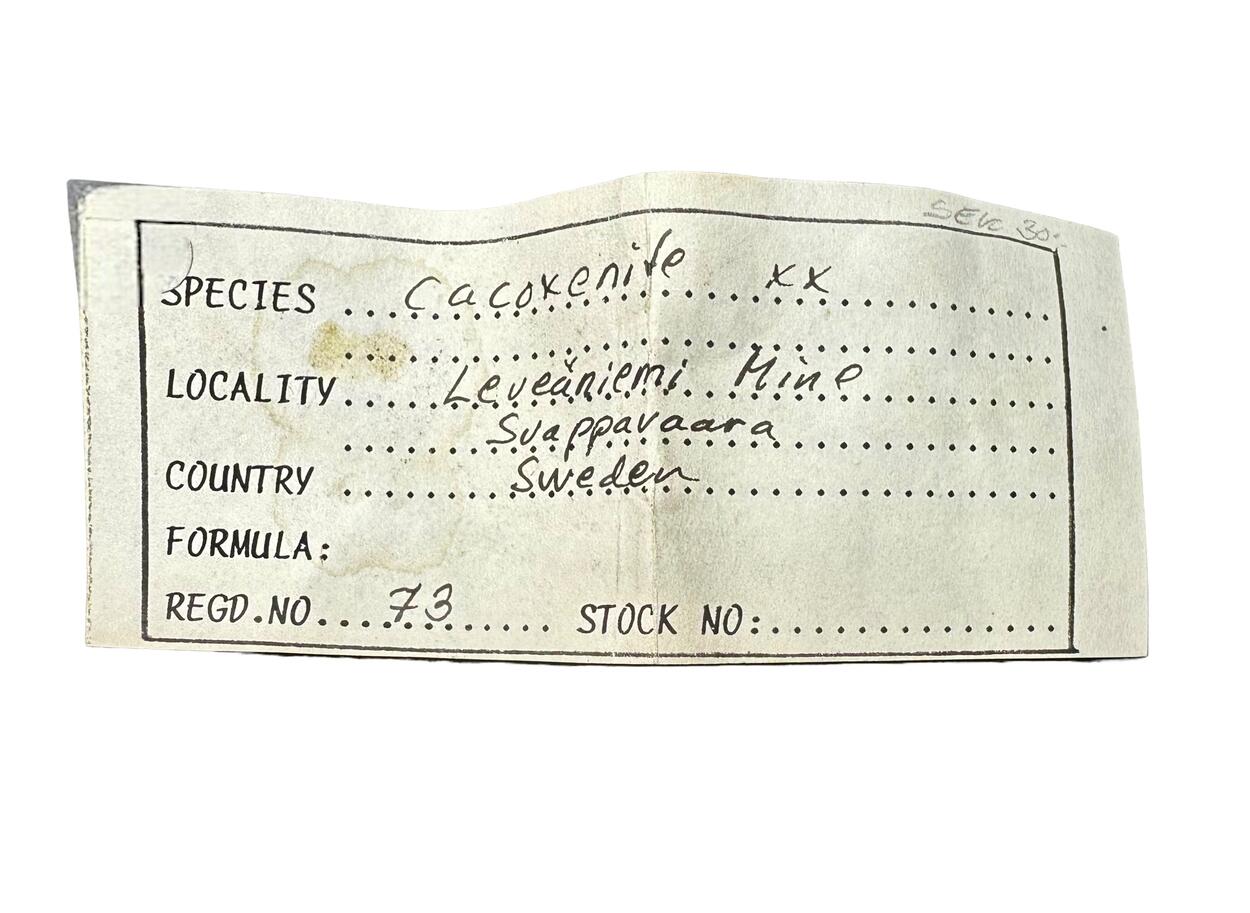 SEK 30:-
SPECIES ... Cacoxenite xx
LOCALITY ... Leveäniemi Mine
Svappavaara
COUNTRY ... Sweden
FORMULA:
REGD.NO ... 73 ... STOCK NO: ...